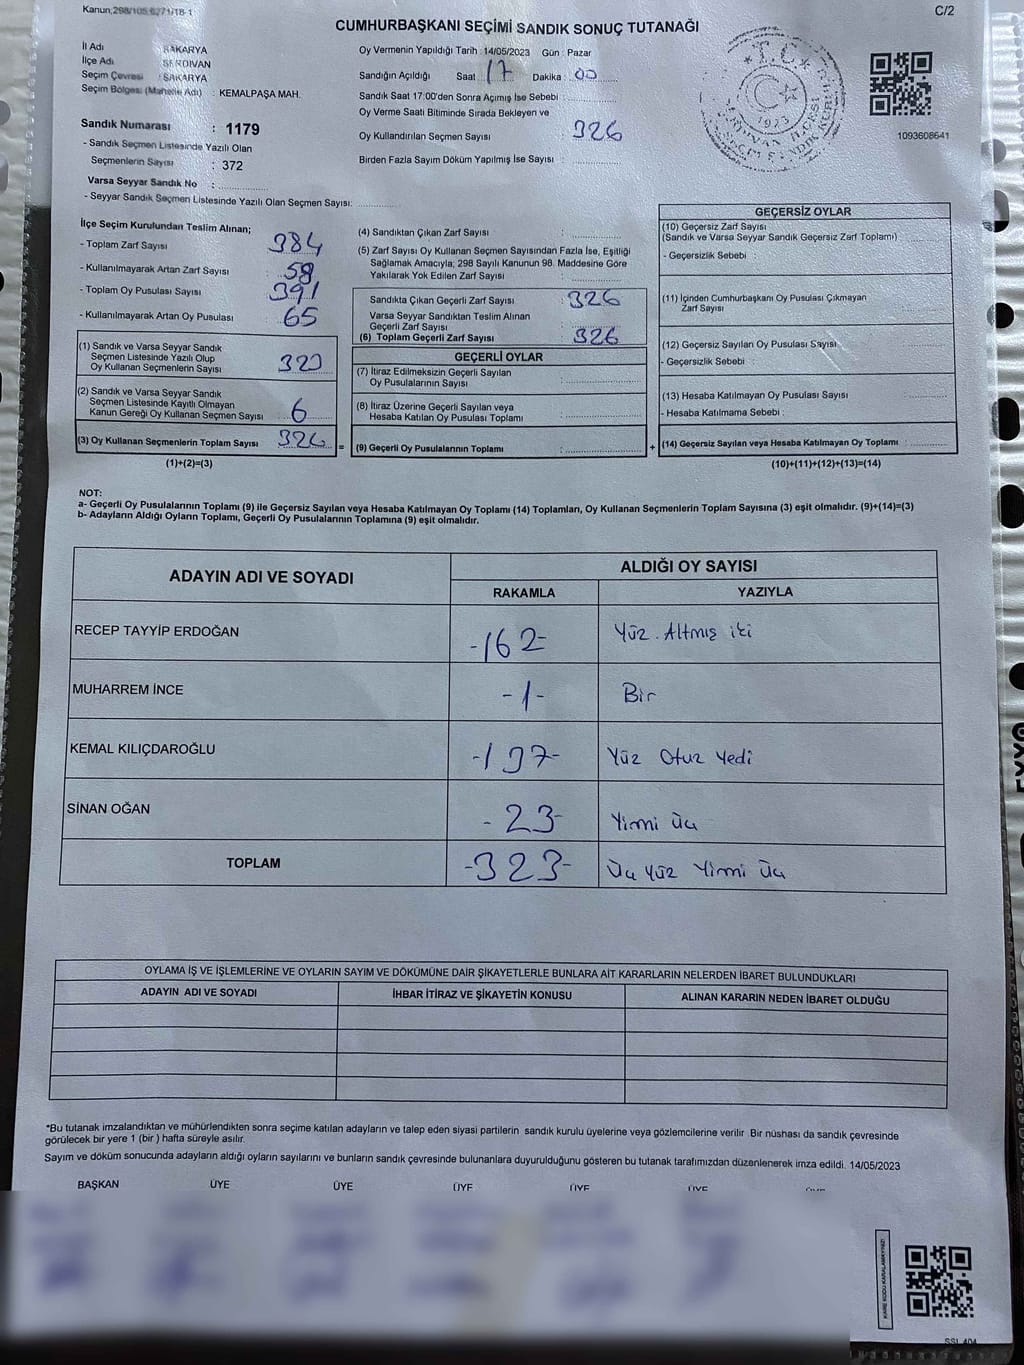 Kanun;298/105,6271/18-1
C/2
CUMHURBAŞKANI SEÇİMİ SANDIK SONUÇ TUTANAĞI
İl Adı SAKARYA
İlçe Adı SERDİVAN
Seçim Çevresi : SAKARYA
Seçim Bölgesi (Mahalle Adı) : KEMALPAŞA MAH.
Sandık Numarası : 1179
- Sandık Seçmen Listesinde Yazılı Olan
Seçmenlerin Sayısı : 372
Varsa Seyyar Sandık No :
- Seyyar Sandık Seçmen Listesinde Yazılı Olan Seçmen Sayısı:
Oy Vermenin Yapıldığı Tarih :14/05/2023 Gün : Pazar
Sandığın Açıldığı Saat 17 Dakika : 00
Sandık Saat 17:00'den Sonra Açımış İse Sebebi :
Oy Verme Saati Bitiminde Sırada Bekleyen ve
Oy Kullandırılan Seçmen Sayısı : 326
Birden Fazla Sayım Döküm Yapılmış İse Sayısı :
T.C.
1923
1093608641
İlçe Seçim Kurulundan Teslim Alınan;
- Toplam Zarf Sayısı : 384
- Kullanılmayarak Artan Zarf Sayısı : 58
- Toplam Oy Pusulası Sayısı : 391
- Kullanılmayarak Artan Oy Pusulası : 65
(1) Sandık ve Varsa Seyyar Sandık
Seçmen Listesinde Yazılı Olup
Oy Kullanan Seçmenlerin Sayısı : 320
(2) Sandık ve Varsa Seyyar Sandık
Seçmen Listesinde Kayıtlı Olmayan
Kanun Gereği Oy Kullanan Seçmen Sayısı : 6
(3) Oy Kullanan Seçmenlerin Toplam Sayısı : 326
(1)+(2)=(3)
(4) Sandıktan Çıkan Zarf Sayısı :
(5) Zarf Sayısı Oy Kullanan Seçmen Sayısından Fazla İse, Eşitliği
Sağlamak Amacıyla; 298 Sayılı Kanunun 98. Maddesine Göre
Yakılarak Yok Edilen Zarf Sayısı :
Sandıkta Çıkan Geçerli Zarf Sayısı : 326
Varsa Seyyar Sandıktan Teslim Alınan
Geçerli Zarf Sayısı :
(6) Toplam Geçerli Zarf Sayısı : 326
GEÇERLİ OYLAR
(7) İtiraz Edilmeksizin Geçerli Sayılan
Oy Pusulalarının Sayısı :
(8) İtiraz Üzerine Geçerli Sayılan veya
Hesaba Katılan Oy Pusulası Toplamı :
= (9) Geçerli Oy Pusulalarının Toplamı :
GEÇERSİZ OYLAR
(10) Geçersiz Zarf Sayısı
(Sandık ve Varsa Seyyar Sandık Geçersiz Zarf Toplamı) :
- Geçersizlik Sebebi :
(11) İçinden Cumhurbaşkanı Oy Pusulası Çıkmayan
Zarf Sayısı :
(12) Geçersiz Sayılan Oy Pusulası Sayısı :
- Geçersizlik Sebebi :
(13) Hesaba Katılmayan Oy Pusulası Sayısı :
- Hesaba Katılmama Sebebi :
+ (14) Geçersiz Sayılan veya Hesaba Katılmayan Oy Toplamı :
(10)+(11)+(12)+(13)=(14)
NOT:
a- Geçerli Oy Pusulalarının Toplamı (9) ile Geçersiz Sayılan veya Hesaba Katılmayan Oy Toplamı (14) Toplamları, Oy Kullanan Seçmenlerin Toplam Sayısına (3) eşit olmalıdır. (9)+(14)=(3)
b- Adayların Aldığı Oyların Toplamı, Geçerli Oy Pusulalarının Toplamına (9) eşit olmalıdır.
ADAYIN ADI VE SOYADI
ALDIĞI OY SAYISI
RAKAMLA YAZIYLA
RECEP TAYYİP ERDOĞAN -162- Yüz Altmış iki
MUHARREM İNCE -1- Bir
KEMAL KILIÇDAROĞLU -137- Yüz Otuz Yedi
SİNAN OĞAN -23- Yirmi Üç
TOPLAM -323- Üç Yüz Yirmi Üç
OYLAMA İŞ VE İŞLEMLERİNE VE OYLARIN SAYIM VE DÖKÜMÜNE DAİR ŞİKAYETLERLE BUNLARA AİT KARARLARIN NELERDEN İBARET BULUNDUKLARI
ADAYIN ADI VE SOYADI İHBAR İTİRAZ VE ŞİKAYETİN KONUSU ALINAN KARARIN NEDEN İBARET OLDUĞU
*Bu tutanak imzalandıktan ve mühürlendikten sonra seçime katılan adayların ve talep eden siyasi partilerin sandık kurulu üyelerine veya gözlemcilerine verilir. Bir nüshası da sandık çevresinde
görülecek bir yere 1 (bir ) hafta süreyle asılır.
Sayım ve döküm sonucunda adayların aldığı oyların sayılarını ve bunların sandık çevresinde bulunanlara duyurulduğunu gösteren bu tutanak tarafımızdan düzenlenerek imza edildi. 14/05/2023
BAŞKAN ÜYE ÜYE ÜYE ÜYE ÜYE
KARE KODU KARALAMAYINIZ!